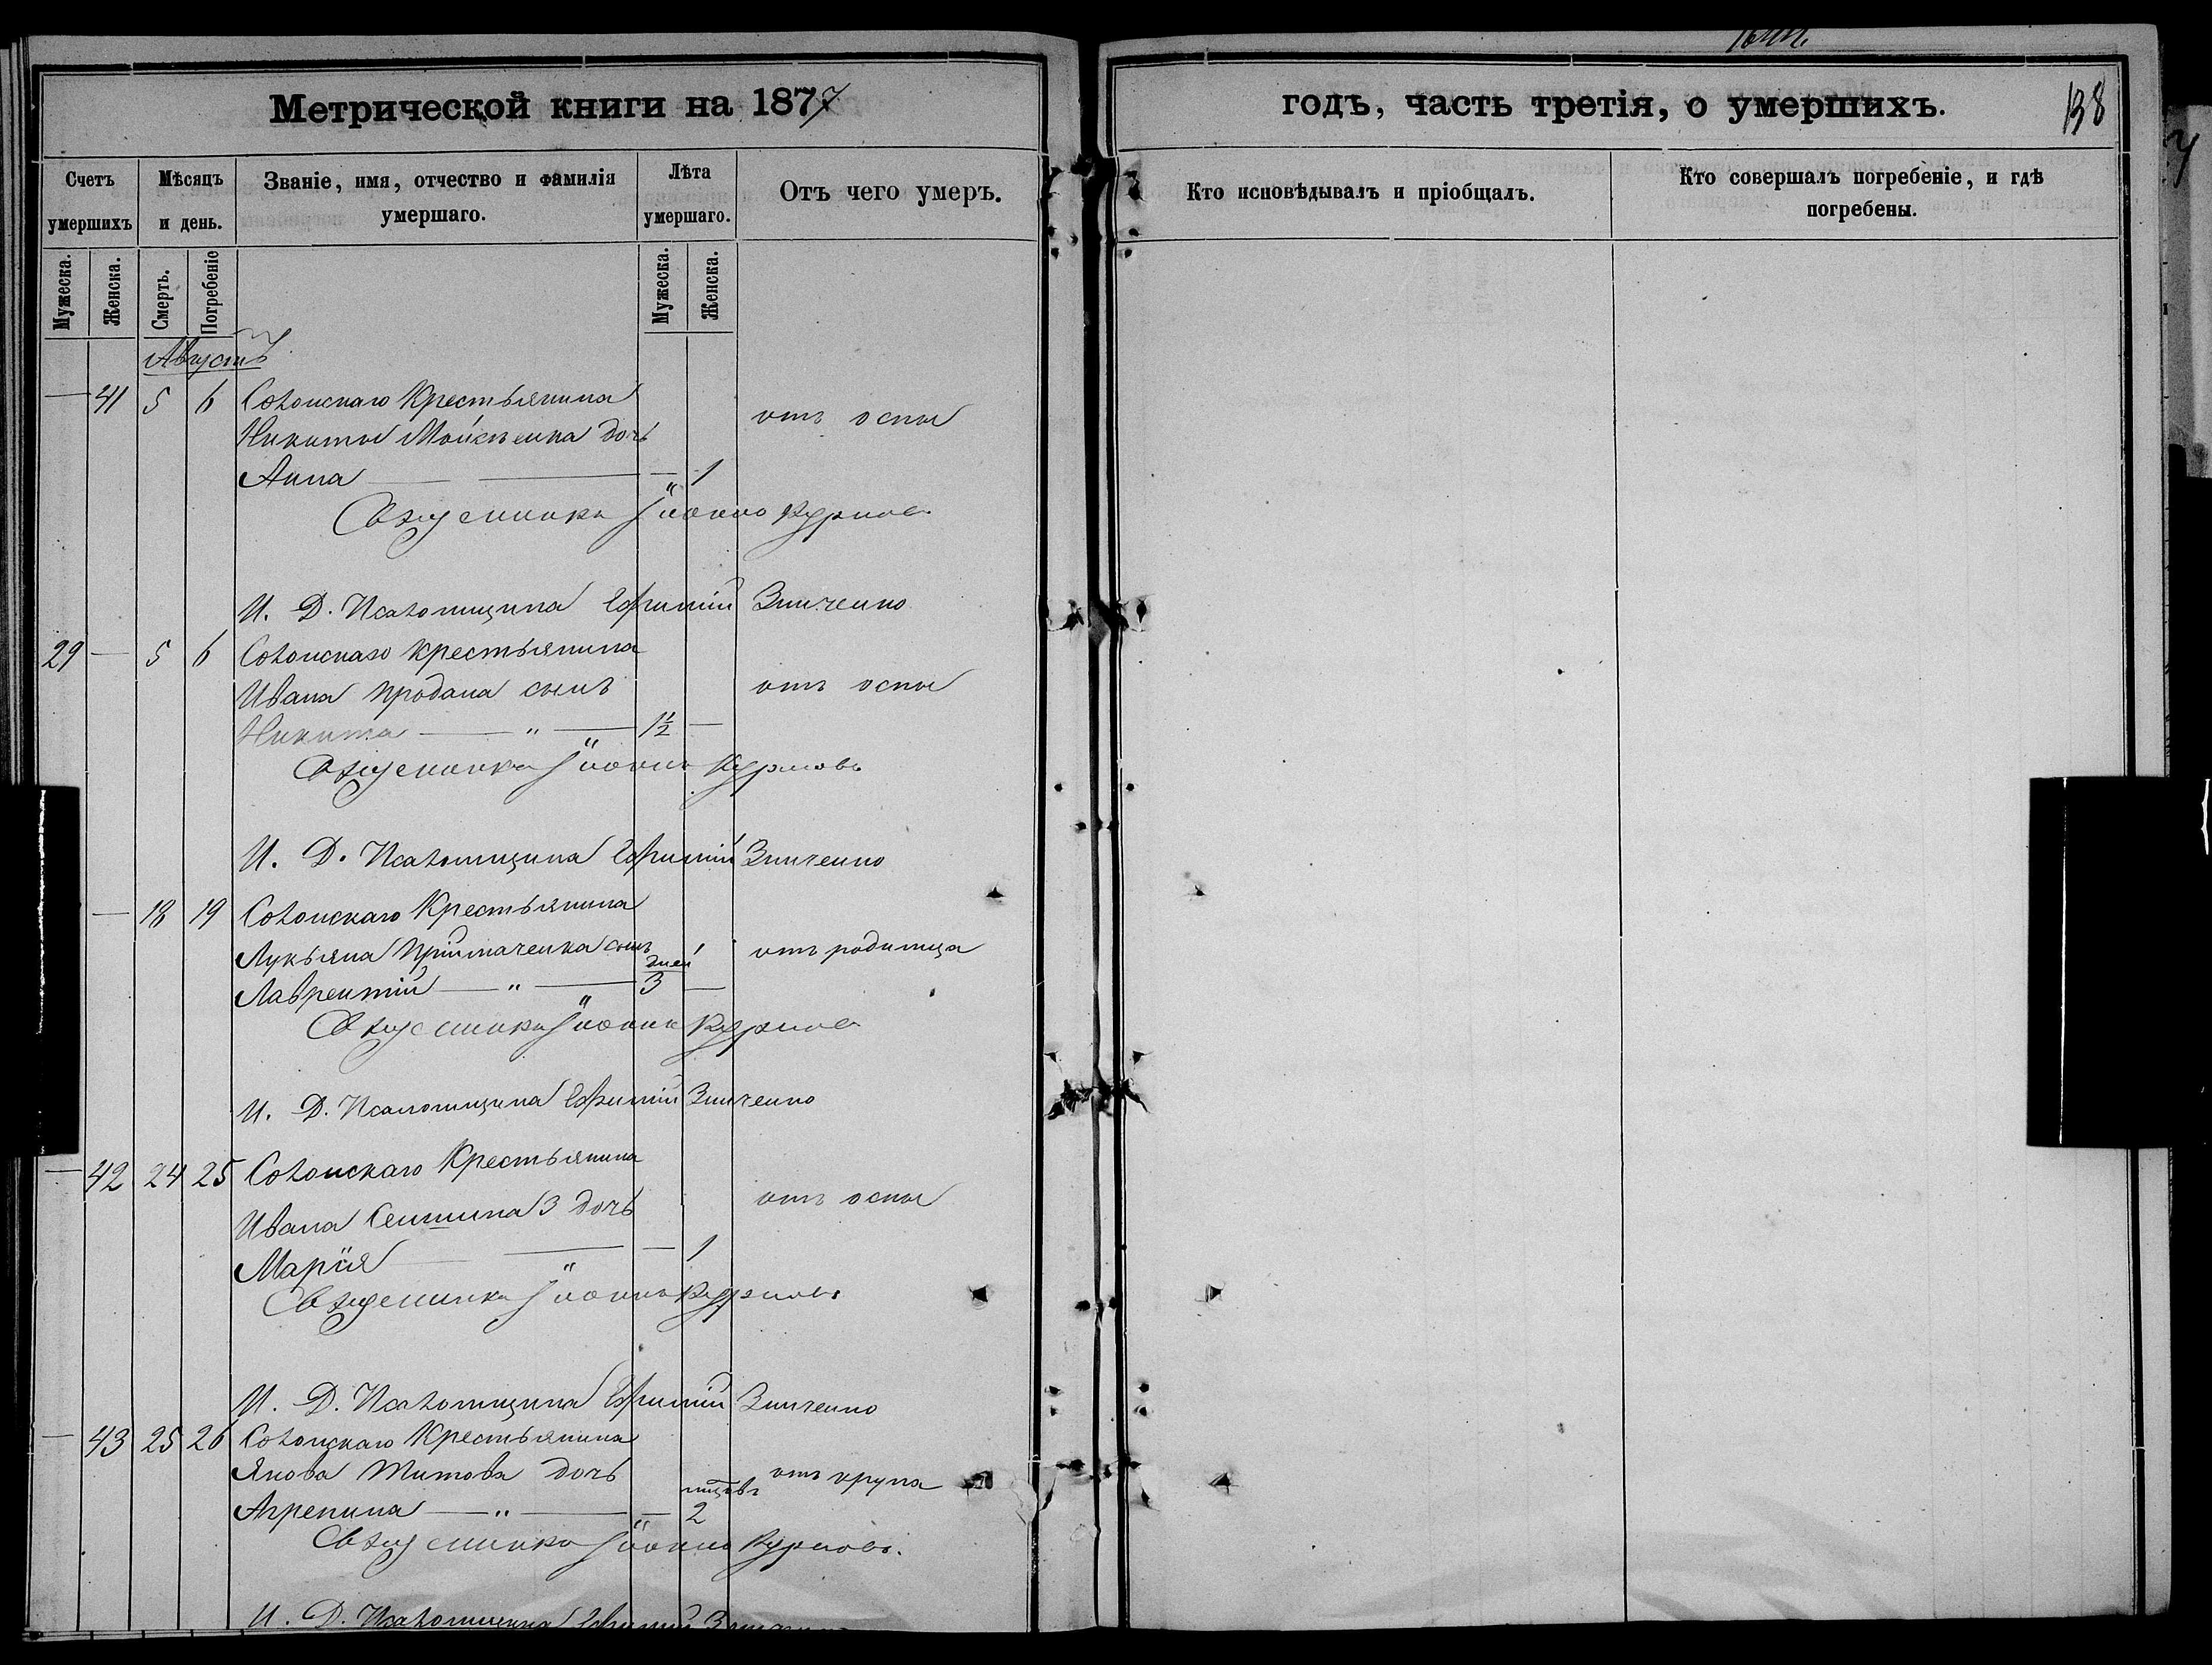 Метрической книги на 1877
Счетъ умершихъ
Мѣсяцъ и день.
Званіе, имя, отчество и фамилія умершаго.
Лѣта умершаго.
Отъ чего умеръ.
Мужеска.
Женска.
Смерть.
Погребеніе
Мужеска.
Женска.
Августъ
— 41 5 6 Крестьянина
Никиты дочь отъ оспы
Анна — — 1
Священникъ Іоаннъ
И. Д. Псаломщика Ефимій Зинченко
29 — 5 6 крестьянина
Ивана Продана сынъ отъ оспы
Никита — " — 1½ —
Священникъ Іоаннъ
И. Д. Псаломщика Ефимій Зинченко
— 18 19 Крестьянина
Лукьяна Пріймаченка сынъ отъ родимца
Лаврентій — " — дней 3 —
Священникъ Іоаннъ
И. Д. Псаломщика Ефимій Зинченко
— 42 24 25 Крестьянина
Ивана 3 дочь отъ оспы
Марія — — 1
Священникъ Іоаннъ
И. Д. Псаломщика Ефимій Зинченко
— 43 25 26 Крестьянина
Якова Титова дочь отъ крупа
Агрепина — " — — мцовъ 2
Священникъ Іоаннъ
И. Д. Псаломщика Ефимій
годъ, часть третія, о умершихъ.
138
Кто исповѣдывалъ и пріобщалъ.
Кто совершалъ погребеніе, и гдѣ погребены.